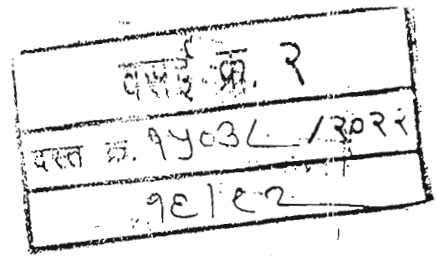 वसई क्र. २
दस्त क्र. १५०३८ /२०२२
१६/९२